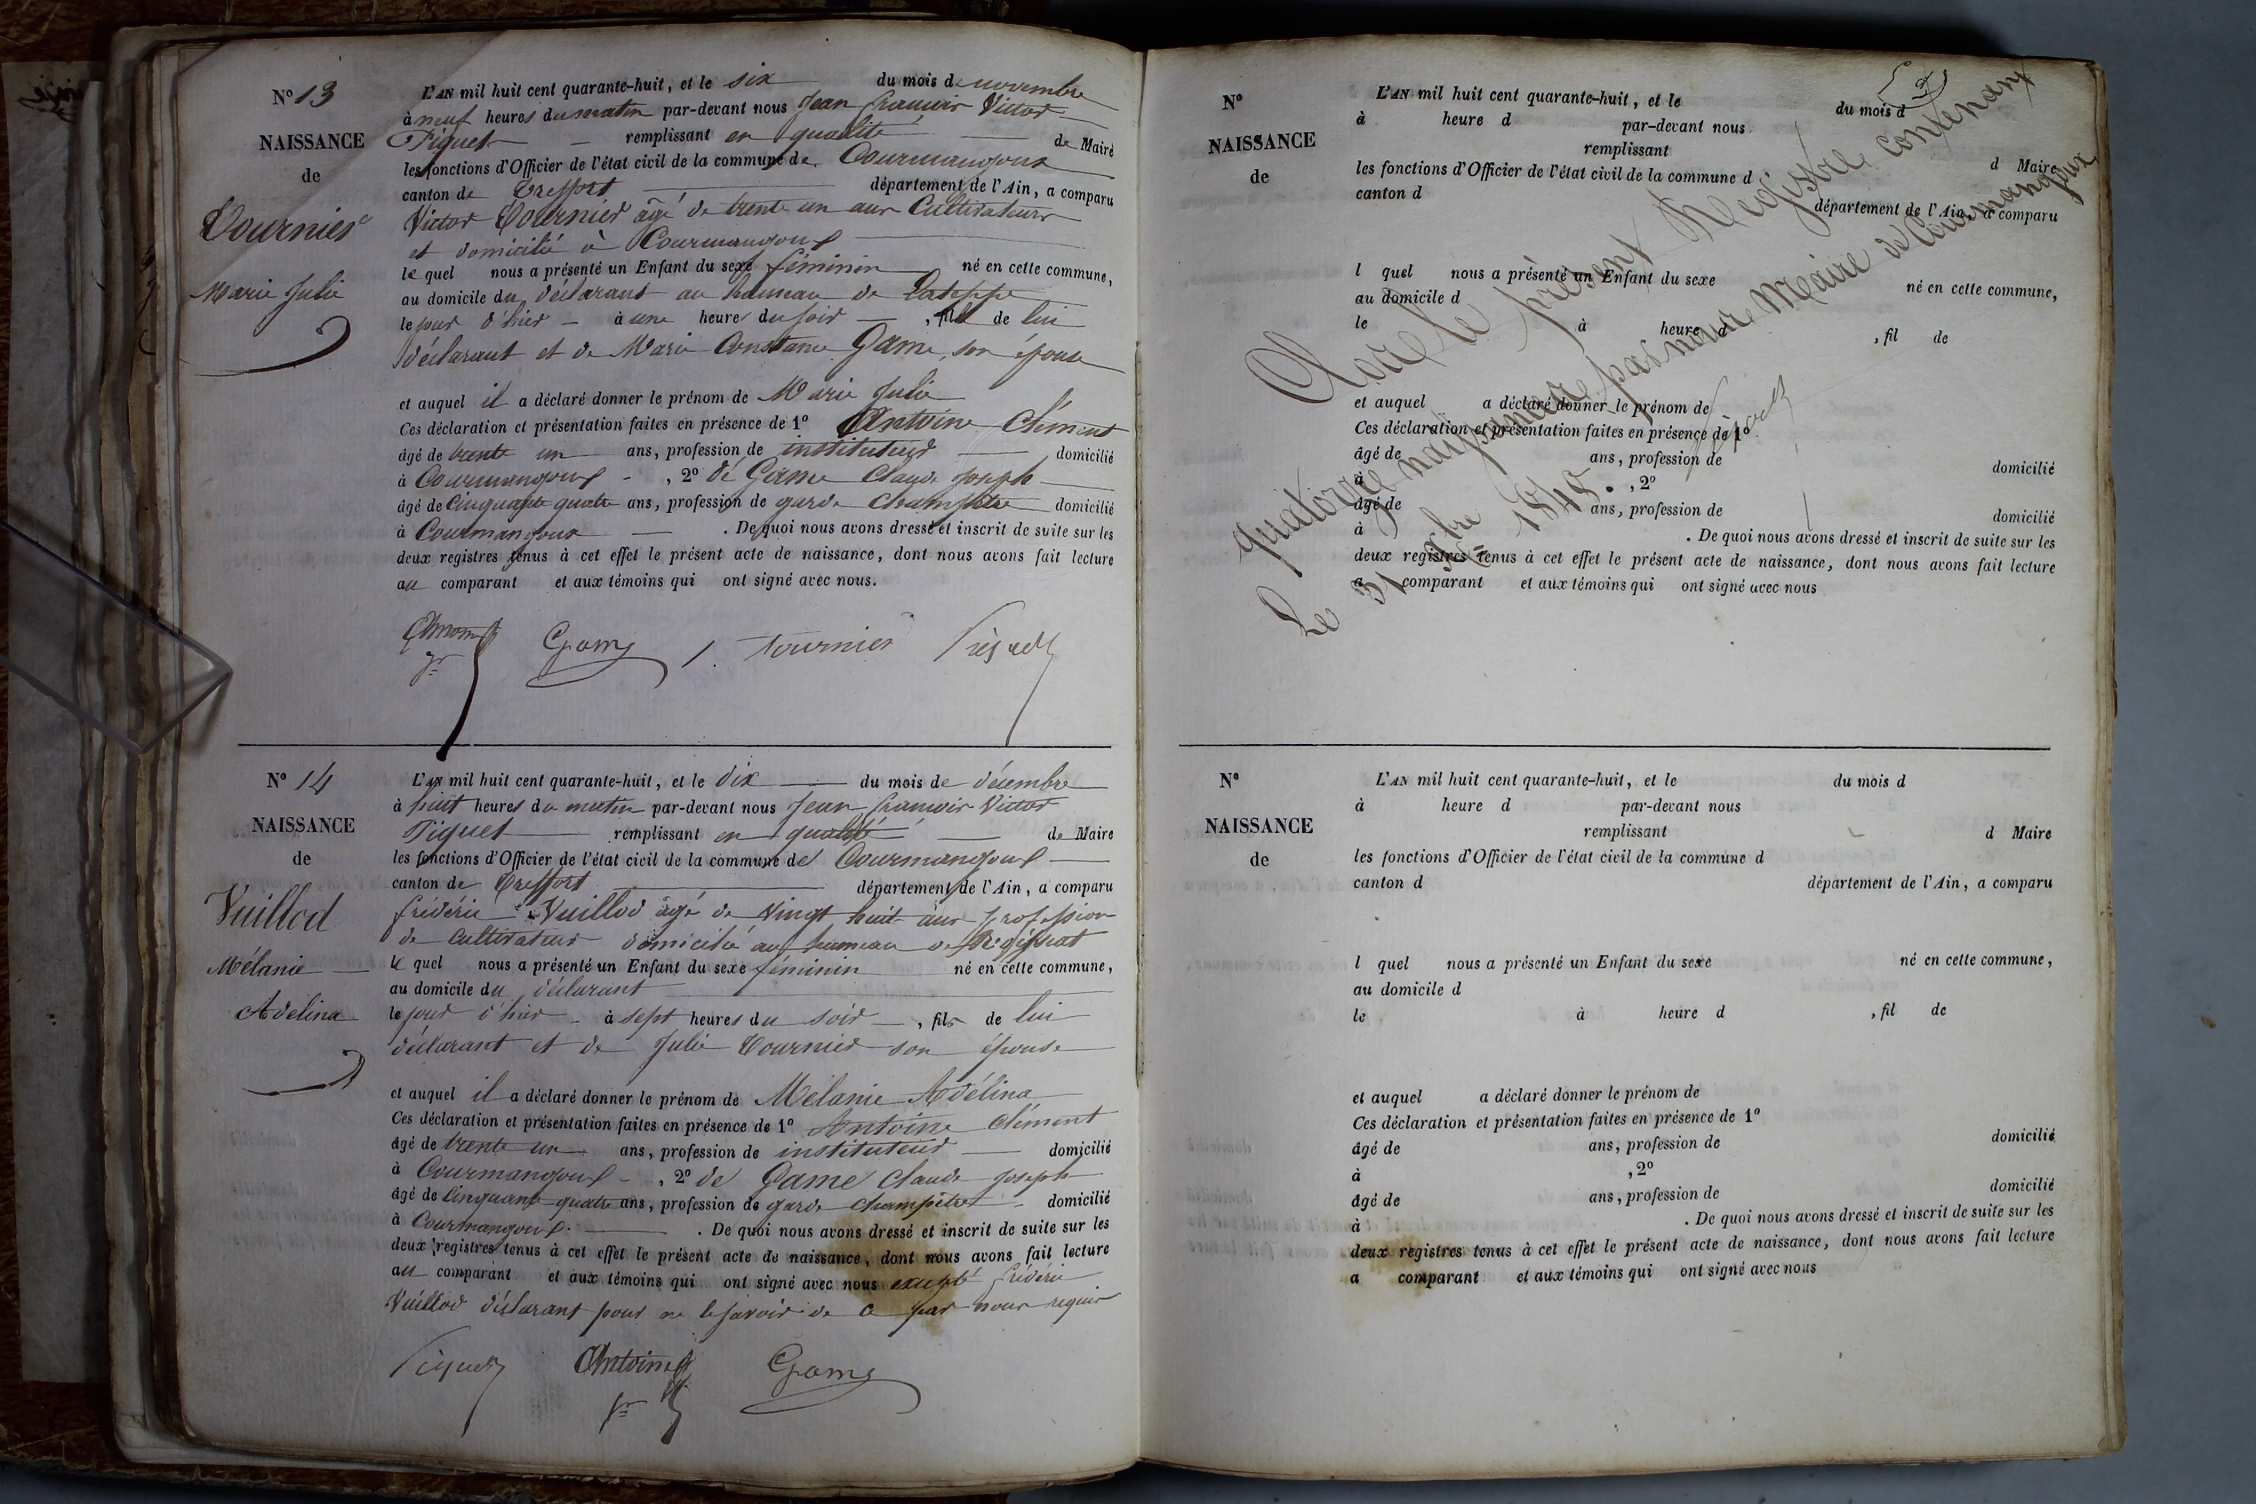 N° 13
NAISSANCE
de
Tournier
Marie Julie
L'AN mil huit cent quarante-huit, et le six du mois de novembre
à neuf heures du matin par-devant nous Jean françois Victor
Piquet remplissant en qualité de Maire
les fonctions d'Officier de l'état civil de la commune de Courmangoux
canton de Treffort département de l'Ain, a comparu
Victor Tournier âgé de trente un ans Cultivateur
et domicilié à Courmangoux
le quel nous a présenté un Enfant du sexe féminin né en cette commune,
au domicile du déclarant au hameau de
le jour d'hier à une heures du soir, fille de lui
déclarant et de Marie Constance Game, son épouse
et auquel il a déclaré donner le prénom de Marie Julie
Ces déclaration et présentation faites en présence de 1° Antoine Clément
âgé de trente un ans, profession de instituteur domicilié
à Courmangoux, 2° de Game Claude Joseph
âgé de Cinquante quatre ans, profession de garde Champêtre domicilié
à Courmangoux. De quoi nous avons dressé et inscrit de suite sur les
deux registres tenus à cet effet le présent acte de naissance, dont nous avons fait lecture
au comparant et aux témoins qui ont signé avec nous.
Game Tournier Piquet
N° 14
NAISSANCE
de
Vuillod
Mélanie
Adélina
L'AN mil huit cent quarante-huit, et le dix du mois de décembre
à huit heures du matin par-devant nous Jean françois Victor
Piquet remplissant en qualité de Maire
les fonctions d'Officier de l'état civil de la commune de Courmangoux
canton de Treffort département de l'Ain, a comparu
frédéric Vuillod âgé de vingt huit ans profession
de Cultivateur domicilié au hameau de Roissiat
le quel nous a présenté un Enfant du sexe féminin né en cette commune,
au domicile du déclarant
le jour d'hier à sept heures du soir, fils de lui
déclarant et de Julie Tournier son épouse
et auquel il a déclaré donner le prénom de Mélanie Adélina
Ces déclaration et présentation faites en présence de 1° Antoine Clément
âgé de trente un ans, profession de instituteur domicilié
à Courmangoux, 2° de Game Claude Joseph
âgé de Cinquante quatre ans, profession de garde champêtre domicilié
à Courmangoux. De quoi nous avons dressé et inscrit de suite sur les
deux registres tenus à cet effet le présent acte de naissance, dont nous avons fait lecture
au comparant et aux témoins qui ont signé avec nous excepté frédéric
Vuillod déclarant pour ne le savoir de ce par nous requis
Piquet Antoine Game
N°
NAISSANCE
de
L'AN mil huit cent quarante-huit, et le du mois d
à heure d par-devant nous
remplissant d Maire
les fonctions d'Officier de l'état civil de la commune d
canton d département de l'Ain, a comparu
l quel nous a présenté un Enfant du sexe né en cette commune,
au domicile d
le à heure d , fil de
et auquel a déclaré donner le prénom de
Ces déclaration et présentation faites en présence de 1°
âgé de ans, profession de domicilié
à , 2°
âgé de ans, profession de domicilié
à . De quoi nous avons dressé et inscrit de suite sur les
deux registres tenus à cet effet le présent acte de naissance, dont nous avons fait lecture
a comparant et aux témoins qui ont signé avec nous
Clos le présent Registre contenant
quatorze naissances par nous Maire de Courmangoux
Le 31 Xbre 1848.
Piquet
N°
NAISSANCE
de
L'AN mil huit cent quarante-huit, et le du mois d
à heure d par-devant nous
remplissant d Maire
les fonctions d'Officier de l'état civil de la commune d
canton d département de l'Ain, a comparu
l quel nous a présenté un Enfant du sexe né en cette commune,
au domicile d
le à heure d , fil de
et auquel a déclaré donner le prénom de
Ces déclaration et présentation faites en présence de 1°
âgé de ans, profession de domicilié
à , 2°
âgé de ans, profession de domicilié
à . De quoi nous avons dressé et inscrit de suite sur les
deux registres tenus à cet effet le présent acte de naissance, dont nous avons fait lecture
a comparant et aux témoins qui ont signé avec nous